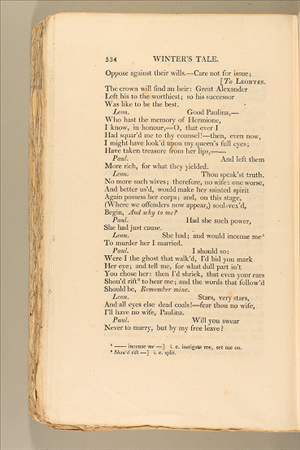 534 WINTER'S TALE.
Oppose against their wills.—Care not for issue;
[To LEONTES.
The crown will find an heir: Great Alexander
Left his to the worthiest; so his successor
Was like to be the best.
Leon. Good Paulina,—
Who hast the memory of Hermione,
I know, in honour,—O, that ever I
Had squar'd me to thy counsel!—then, even now,
I might have look'd upon my queen's full eyes;
Have taken treasure from her lips,——
Paul. And left them
More rich, for what they yielded.
Leon. Thou speak'st truth.
No more such wives; therefore, no wife: one worse,
And better us'd, would make her sainted spirit
Again possess her corps; and, on this stage,
(Where we offenders now appear,) soul-vex'd,
Begin, And why to me?
Paul. Had she such power,
She had just cause.
Leon. She had; and would incense me³
To murder her I married.
Paul. I should so:
Were I the ghost that walk'd, I'd bid you mark
Her eye; and tell me, for what dull part in't
You chose her: then I'd shriek, that even your ears
Shou'd rift⁴ to hear me; and the words that follow'd
Should be, Remember mine.
Leon. Stars, very stars,
And all eyes else dead coals!—fear thou no wife,
I'll have no wife, Paulina.
Paul. Will you swear
Never to marry, but by my free leave?
³ —— incense me —] i. e. instigate me, set me on.
⁴ Shou'd rift —] i. e. split.